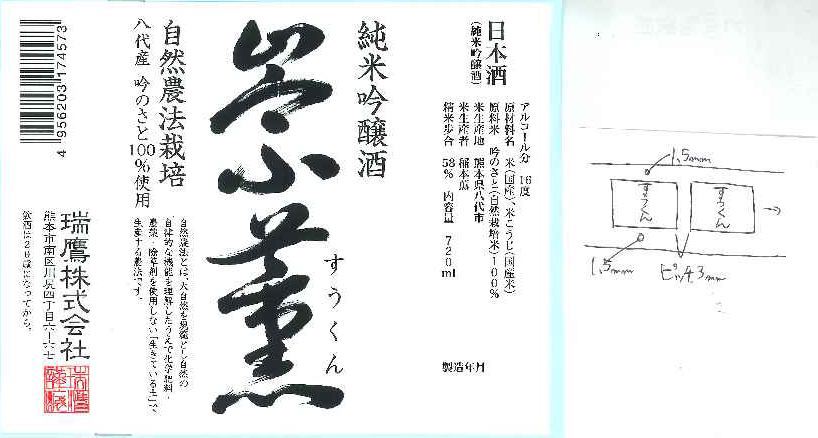 日本酒
(純米吟醸酒)
アルコール分 16度
原材料名 米(国産)、米こうじ(国産米)
原料米 吟のさと(自然栽培米)100%
米生産地 熊本県八代市
米生産者 稲本薫
精米歩合 58% 内容量 720ml
製造年月
純米吟醸酒
崇薫
すうくん
自然農法栽培
八代産 吟のさと100%使用
自然農法とは、大自然を規範とし自然の
自律的な機能を理解したうえで化学肥料・
農薬・除草剤を使用しない「生きている土」で
生産する農法です。
瑞鷹株式会社
熊本市南区川尻四丁目六-六七
飲酒は20歳になってから。
4 956203 174573
1.5mm
すうくん
すうくん
1.5mm
ピッチ3mm